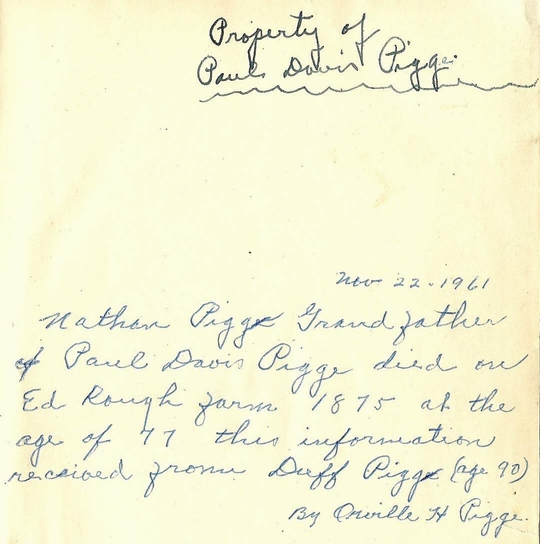 Property of
Paul Davis Pigge.
Nov 22-1961
Nathan Pigge Grandfather
of Paul Davis Pigge died on
Ed Rough farm 1875 at the
age of 77 this information
received from Duff Pigge (age 90)
By Orville H Pigge.